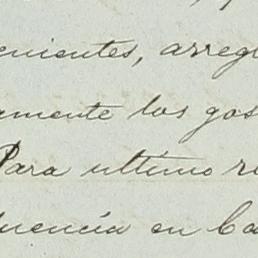 enientes, arreg
amente los gas
Para ultimo r
uencia en Ca